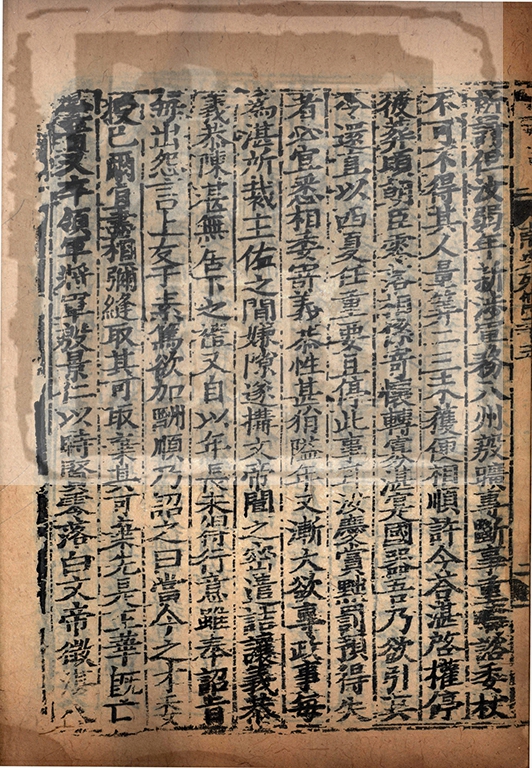 所請但汝弱年新涉軍務八州殷曠專斷事重疇諮委杖
不可不得其人量筭二三未獲便相順許今答湛啓權停
彼葬頃朝臣零落相係寄懷轉寡湛實國器吾乃欲引其
令還直以西夏任重要且停此事耳汝慶賞黜罰預得失
者必宜悉相委寄義恭性甚狷隘年又漸大欲專政事每
為湛所裁主佐之間嫌隙遂搆文帝聞之密遣詰讓義恭
義恭陳湛無居下之禮又自以年長未得行意雖奉詔旨
頗出怨言上友于素篤欲加酬順乃詔之曰當今之才委
授已爾宜盡相彌縫取其可取棄其可棄先是王華既亡
曇首又卒領軍將軍殷景仁以時賢零落白文帝徵湛八